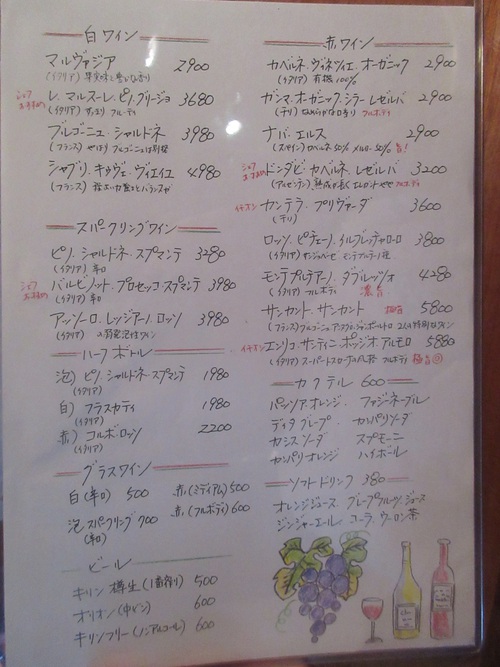 白ワイン
マルヴァジア 2900
(イタリア)
シェフおすすめ
レ・マルスーレ・ピノ・グリージョ 3680
(イタリア) すっきり フルーティ
ブルゴーニュ・シャルドネ 3980
(フランス) やはり ブルゴーニュは別格
シャブリ・キュヴェ・ヴィエイユ 4980
(フランス)
スパークリングワイン
ピノ・シャルドネ・スプマンテ 3280
(イタリア) 辛口
シェフおすすめ
バルビノット・プロセッコ・スプマンテ 3980
(イタリア) 辛口
アッソーロ・レッジアーノ・ロッソ 3980
(イタリア) の弱発泡性ワイン
ハーフボトル
泡) ピノ・シャルドネ・スプマンテ 1980
(イタリア)
白) フラスカティ 1980
(イタリア)
赤) コルボ・ロッソ 2200
(イタリア)
グラスワイン
白(辛口) 500 赤(ミディアム) 500
泡 スパークリング 700 赤(フルボディ) 600
(辛口)
ビール
キリン 樽生 (1番搾り) 500
オリオン (中ビン) 600
キリンフリー (ノンアルコール) 600
赤ワイン
カベルネ・ヴェネツィエ・オーガニック 2900
(イタリア) 有機100%
ガンマ・オーガニック・シラー レゼルバ 2900
(チリ) なめらかな口当り フルボディ
ナバ・エルス 2900
(スペイン) カベルネ50% メルロー50% 旨!
シェフおすすめ
ドンダビ・カベルネ・レゼルバ 3200
(アルゼンチン) 熟成が長く エレガント やや フルボディ
イチオシ
カンテラ・プリヴァーダ 3600
(チリ)
ロッソ・ピチェーノ・イルブレッチャローロ 3800
(イタリア) サンジョベーゼ モンテプルチアーノ種
モンテプルチアーノ・ダブルッツォ 4280
(イタリア) フルボディ 濃旨
サンカント・サンカント 極旨 5800
(フランス) ブルゴーニュ
イチオシ
エンリコ・サンティーニ・ポッジオ アルモロ 5880
(イタリア) スーパートスカーナの風格 フルボディ 極旨
カクテル 600
パッソア・オレンジ・ ファジーネーブル
ディタ グレープ・ カンパリソーダ
カシスソーダ スプモーニ
カンパリオレンジ ハイボール
ソフトドリンク 380
オレンジジュース・グレープフルーツ・ジュース
ジンジャーエール・コーラ・ウーロン茶